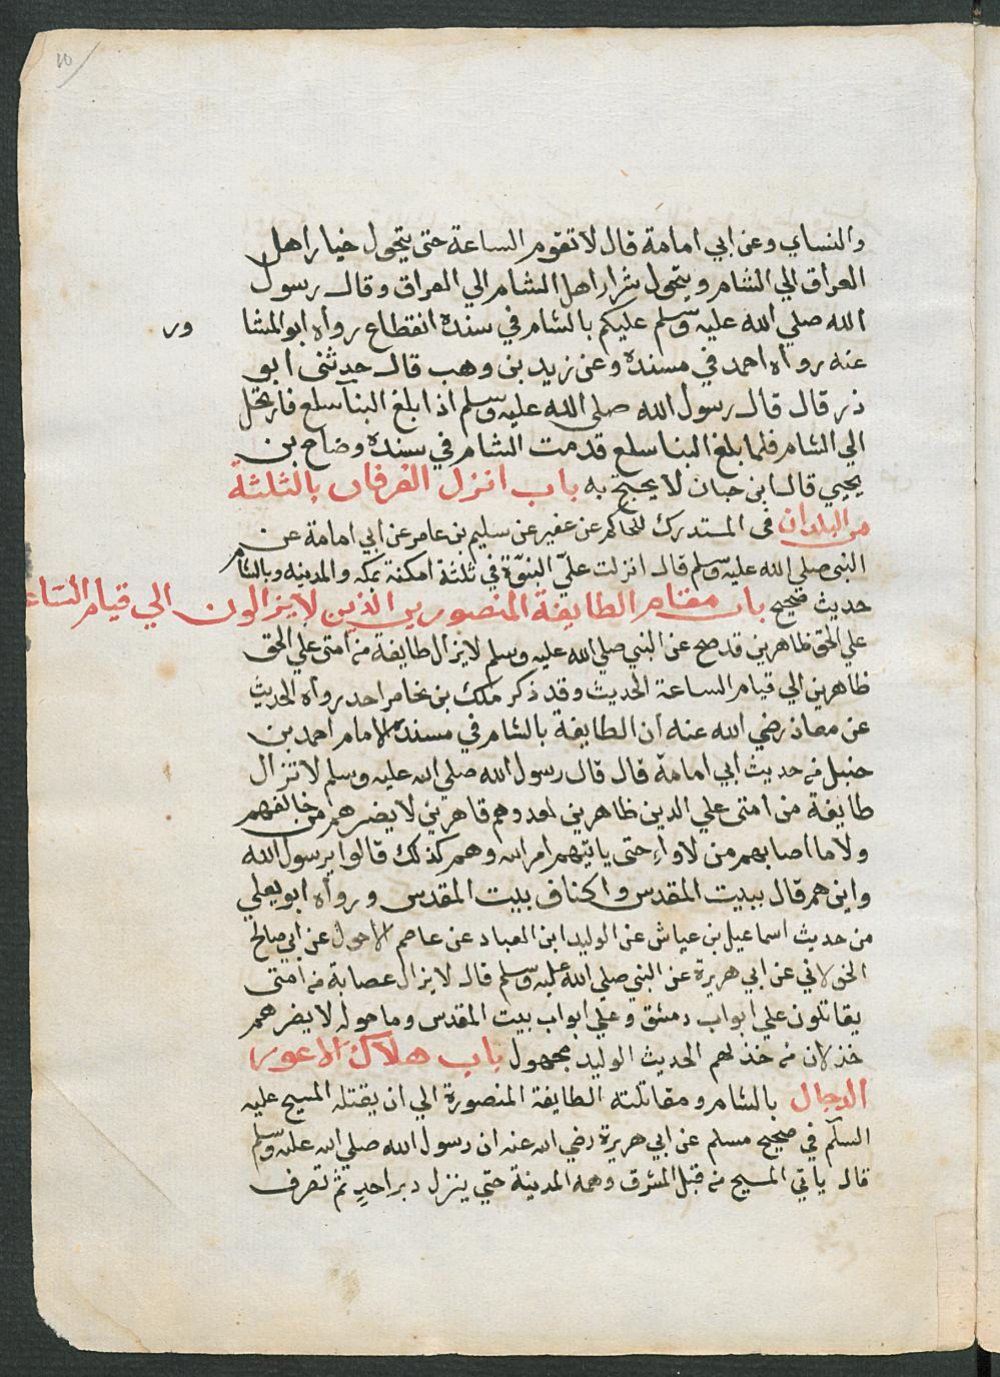 ١٥
والنساي وعن ابي امامة قال لا تقوم الساعة حتى يتحول خيار اهل
العراق الي الشام ويتحول شرار اهل الشام الي العراق وقال رسول
الله صلي الله عليه وسلم عليكم بالشام في سنده انقطاع رواه ابو المشا ور
عنه رواه احمد في مسنده وعن زيد بن وهب قال حدثني ابو
ذر قال قال رسول الله صلى الله عليه وسلم اذا بلغ البنا سلع فارتحل
الي الشام فلما بلغ البنا سلع قدمت الشام في سنده وضاح بن
يحيي قال ابن حبان لا يحتج به باب انزل الفرقان بالثلثة
من البلدان في المستدرك للحاكم عن عفير عن سليم بن عامر عن ابي امامة عن
النبي صلي الله عليه وسلم قال انزلت علي النبوة في ثلثة امكنة بمكه والمدينه وبالشام
حديث صحيح باب مقام الطايفة المنصورين الذين لا يزالون الي قيام الساعة
علي الحق ظاهرين قد صح عن النبي صلي الله عليه وسلم لا يزال طايفة من امتى علي الحق
ظاهرين الي قيام الساعة الحديث وقد ذكر ملك بن يخامر احد رواه الحديث
عن معاذ رضي الله عنه ان الطايفة بالشام في مسنده الامام احمد بن
حنبل من حديث ابي امامة قال قال رسول الله صلي الله عليه وسلم لا تزال
طايفة من امتى علي الدين ظاهرين لعدوهم قاهرين لا يضرهم من خالفهم
ولا ما اصابهم من لاواء حتى ياتيهم امر الله وهم كذلك قالوا يرسول الله
واين هم قال ببيت المقدس واكناف بيت المقدس ورواه ابو يعلي
من حديث اسماعيل بن عياش عن الوليد ابن العباد عن عاصم الاحول عن ابي صالح
الخولاني عن ابي هريرة عن النبي صلي الله عليه وسلم قال لا يزال عصابة من امتى
يقاتلون علي ابواب دمشق وعلي ابواب بيت المقدس وما حوله لا يضرهم
خذلان من خذلهم الحديث الوليد مجهول باب هلاك الاعور
الدجال بالشام ومقاتلته الطايفة المنصورة الي ان يقتله المسيح عليه
السلم في صحيح مسلم عن ابي هريرة رضي الله عنه ان رسول الله صلي الله عليه وسلم
قال ياتي المسيح من قبل المشرق وهمه المدينة حتي ينزل دبر احد ثم تصرف